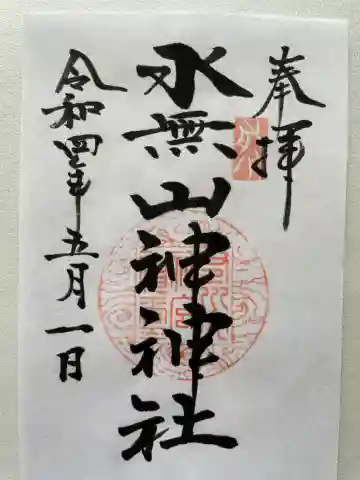 奉拝
水無山神神社
令和四年五月一日